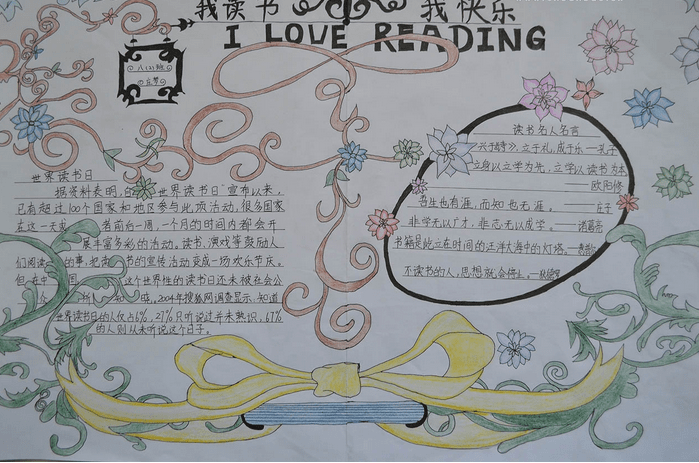 我读书 我快乐
I LOVE READING
八(3)班
世界读书日
据资料表明,自"世界读书日"宣布以来,
已有超过100个国家和地区参与此项活动,很多国家
在这一天或 者前后一周,一个月的时间内都会开
展丰富多彩的活动。读书、演戏等鼓励人
们阅读 的事,把 书的宣传活动变成一场欢乐节庆。
但在中国 这个世界性的读书日还未被社会公
2004年搜狐网调查显示,知道
世界读书日的人仅占6%,27%只听说过并未熟识,67%
的人则从未听说这个日子。
读书名人名言
兴于《诗》,立于礼,成于乐—孔子
立身以立学为先,立学以读书为本
——欧阳修
吾生也有涯,而知也无涯。——庄子
非学无以广才,非志无以成学。—诸葛亮
书籍是屹立在时间的汪洋大海中的灯塔。
不读书的人,思想就会停止。